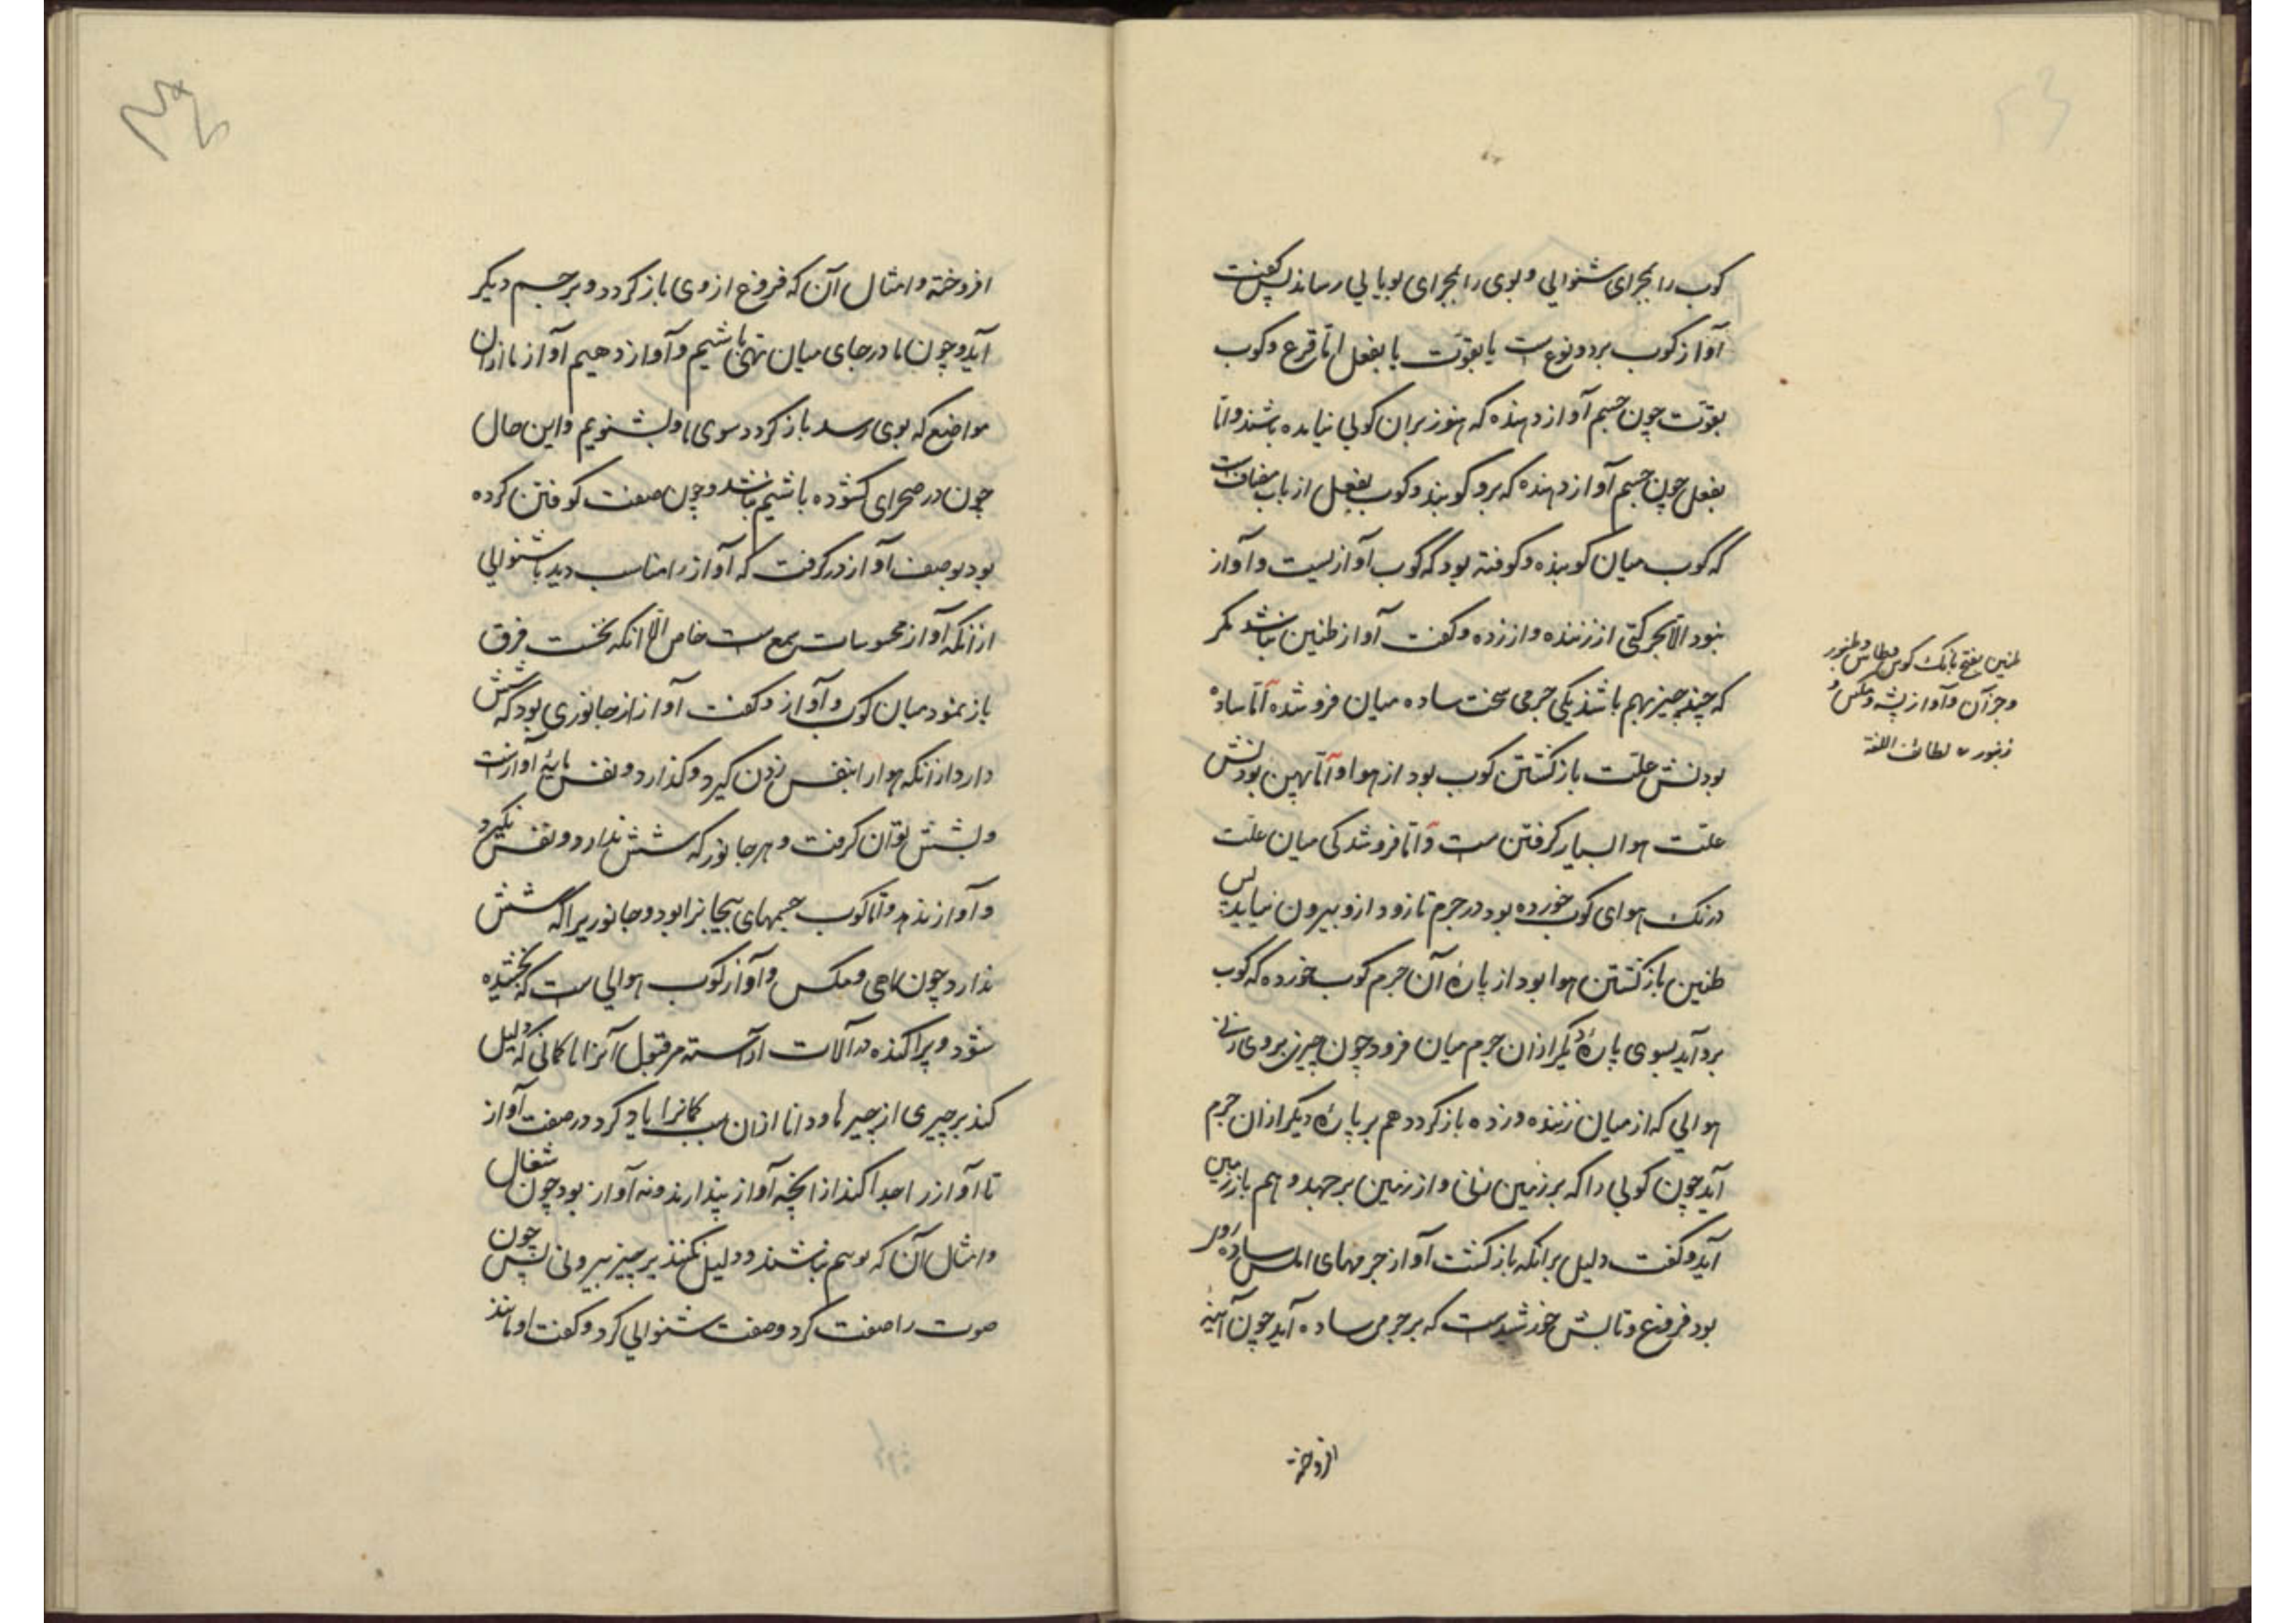 کوب را بمجرای شنوایی و بوی را بمجرای بویایی رساند پس کفت
آواز کوب بر دو نوع ست یا بقوت یا بفعل اما قرع و کوب
بقوت چون جسم آواز دهنده که هنوز بران کوبی نیامده باشند و اما
بفعل چون جسم آواز دهنده که برو کوبند و کوب بفعل از باب مضافست
که کوب میان کوبنده و کوفته بود که کوب آواز نیست و آواز
نبود الا بحرکتی از زننده و از زده و کفت آواز طنین نباشد مکر
که چند چیز بهم باشند یکی جرمی سخت ساده میان فرو شده اما ساده
بودنش علت باز کشتن کوب بود از هوا و اما پهن بودنش
علت هوا بسیار کرفتن ست و اما فرو شدکی میان علت
درنک هوای کوب خورده بود در جرم تا زود ازو بیرون نیاید پس
طنین باز کشتن هوا بود از پارهٔ آن جرم کوب خورده که کوب
برو آید بسوی پارهٔ دیکر ازان جرم میان فرو چون چیزی بروی زنی
هوایی که از میان زننده و زده باز کردد هم بر پارهٔ دیکر ازان جرم
آید چون کویی را که بر زمین زنی و از زمین بر جهد و هم باز زمین
آید و کفت دلیل برانکه باز کشت آواز جرمهای املس ساده روی
بود فروغ و تابش خورشیدست که بر جرمی ساده آید چون آینه
افروخته
طنین بفتح بانک کوس و طاس و طنبور
و جز آن و آواز پشه و مکس و
زنبور لطائف اللغة
افروخته و امثال آن که فروغ از وی باز کردد و بر جسم دیکر
آید و چون ما در جای میان تهی باشیم و آواز دهیم آواز ما ازان
مواضع که بوی رسد باز کردد سوی ما و بشنویم و این حال
چون در صحرای کشوده باشیم نباشد و چون صفت کوفتن کرده
بود بوصف آواز در کرفت که آواز را مناسب دید با شنوایی
ازانکه آواز محسوسات سمع ست خاص الا انکه نخست فرق
باز نمود میان کوب و آواز و کفت آواز از جانوری بود که شش
دارد ازانکه هوا را بنفس زدن کیرد و کذارد و نفس مایهٔ آوازست
و بشش توان کرفت و هر جانور که شش ندارد و نفس نکیرد
و آواز ندهد و اما کوب جسمهای بیجانرا بود و جانوریرا که شش
ندارد چون ماهی و مکس و آواز کوب هوایی ست که بخشیده
شود و پراکنده در آلات آراسته مر قبول آنرا با کمانی که دلیل
کند بر چیزی از چیزها و دانا ازان سبب کمانرا یاد کرد در صفت آواز
تا آواز را جدا کند از انچه آواز پندارند و نه آواز بود چون سعال
و امثال آن که بوهم نباشند و دلیل نکنند بر چیز بیرونی پس چون
صوت را صفت کرد و صفت شنوایی کرد و کفت او مانند